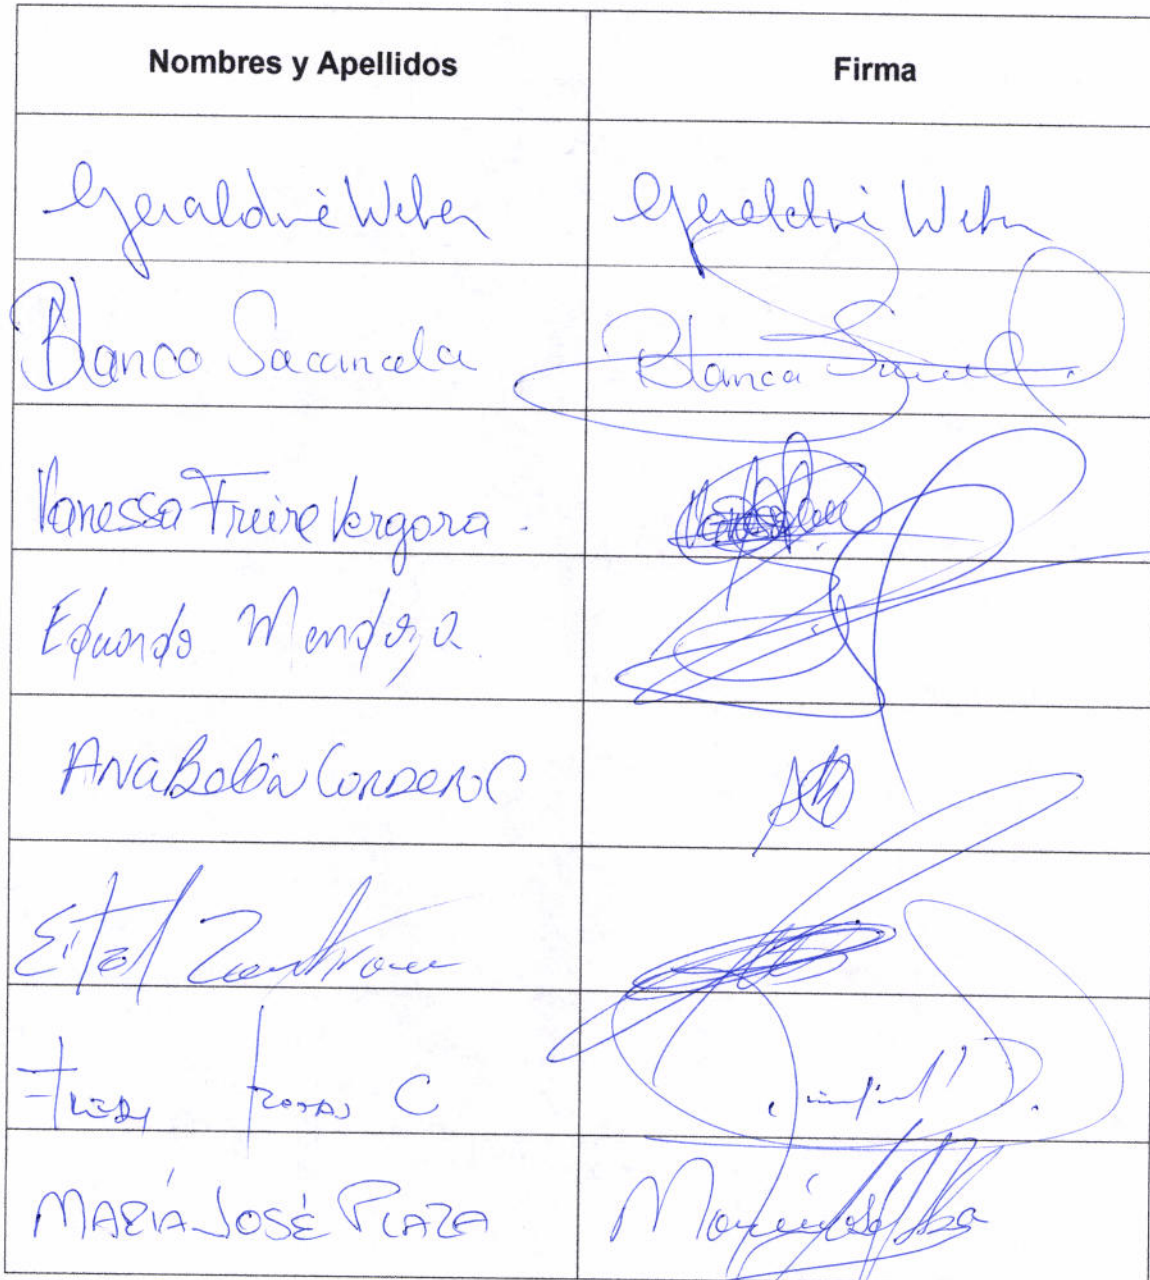 Nombres y Apellidos Firma
Geraldine Weber Geraldine Weber
Blanca Sacancela Blanca
Vanessa Freire Vergara.
Eduardo Mendoza
Ana Belén Cordero C
Eitel Zambrano
Fredy Rojas C
MARÍA JOSÉ PLAZA María José Plaza